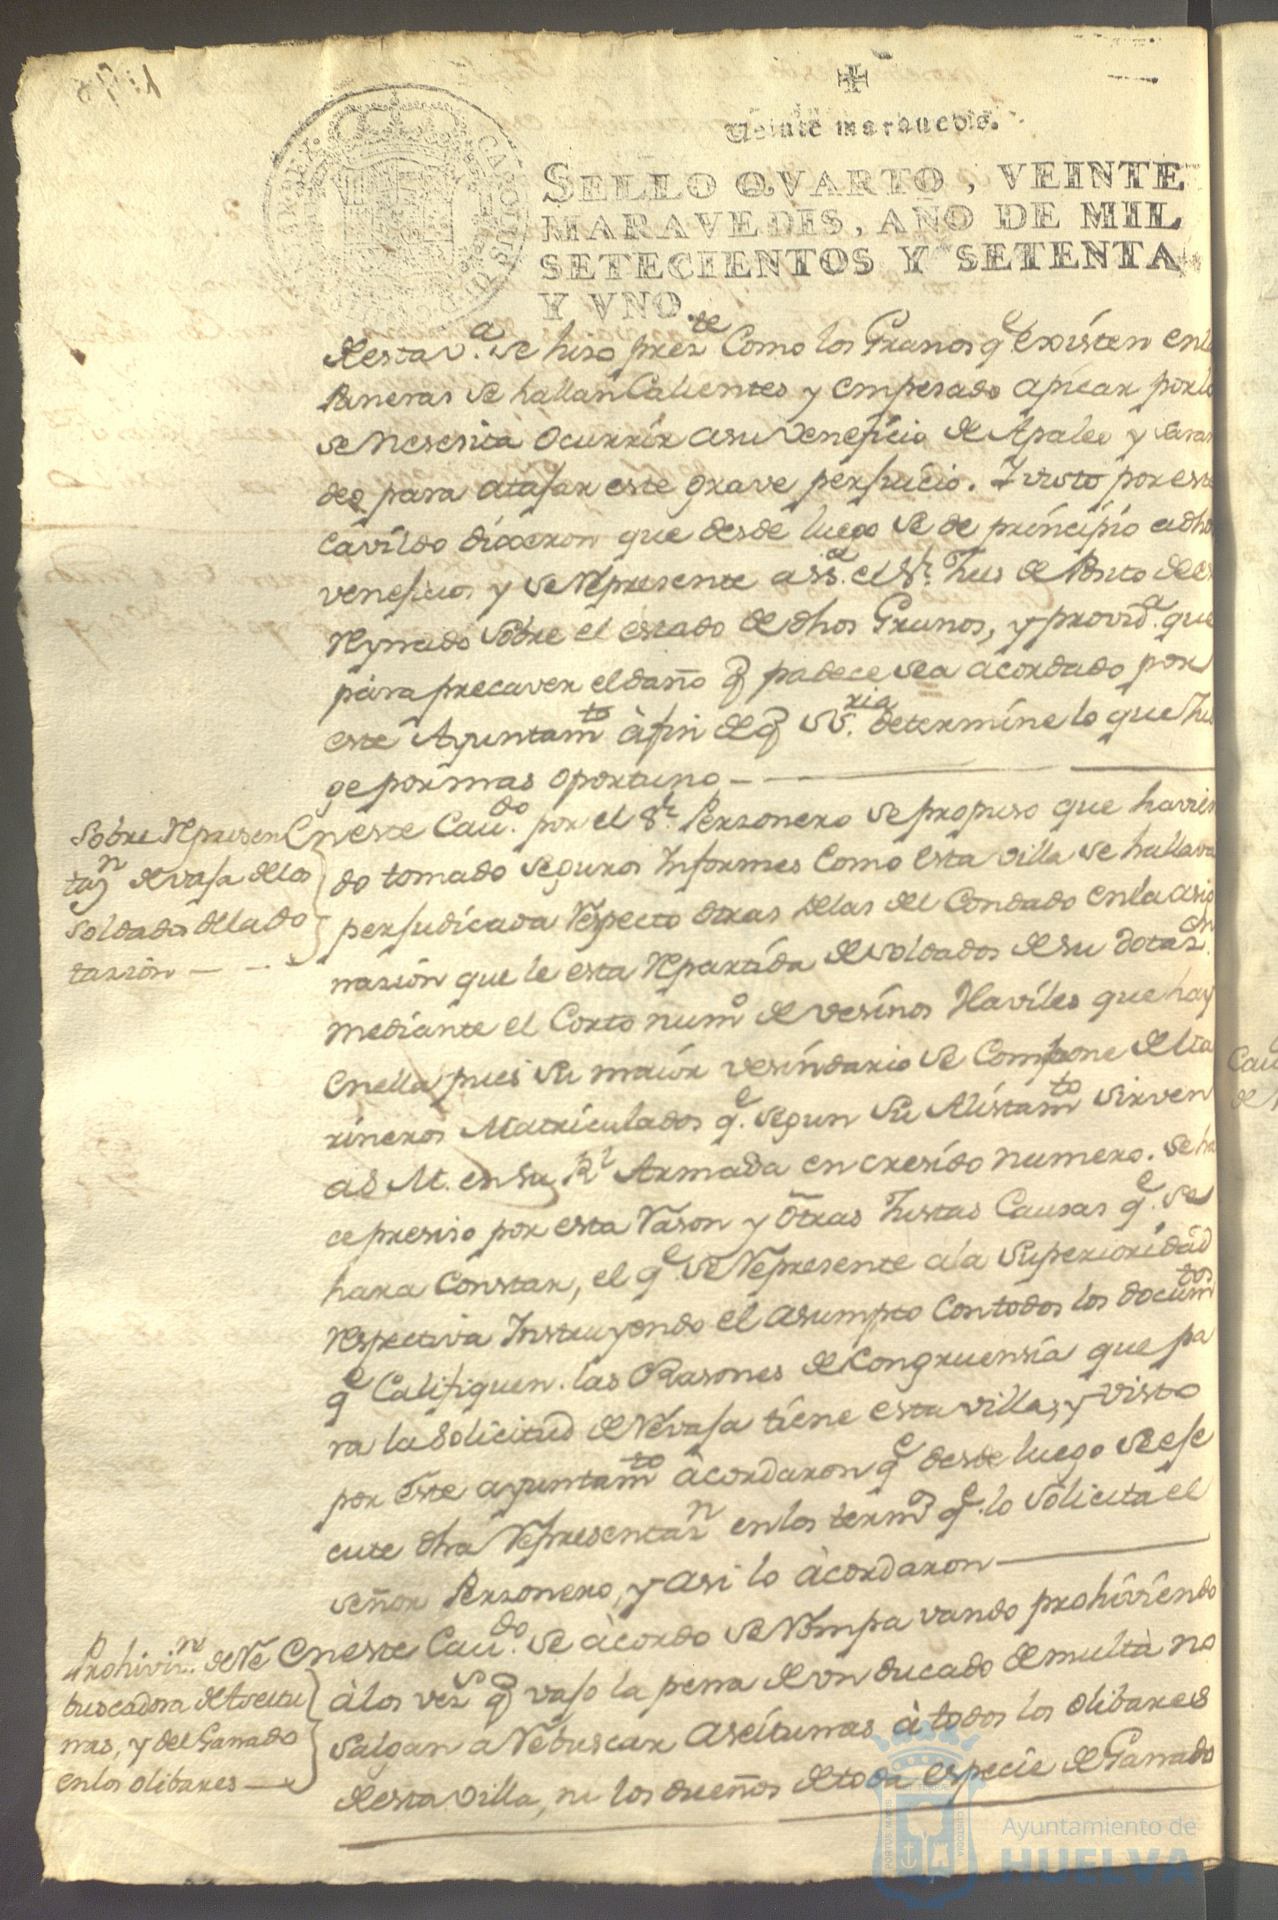 Veinte maravedis.
SELLO QVARTO, VEINTE
MARAVEDIS, AÑO DE MIL
SETECIENTOS Y SETENTA
Y VNO.
CAROLUS
desta v.ª se hiso prez.te Como los Granos q.e Existen enla
Paneras se hallan Calientes y empesado apicar porlo
se Nesesita Ocurrir asu Veneficio de Apaleo y saran
deo para atajar este grave perjuicio. I visto por este
Cavildo dixeron que desde luego se de principio adho
veneficio y se Represente a s s.ª el S.r Jues de Posito deest
Reynado sobre el estado de dhos Granos, y provid.ª que
para precaver el daño q̃ padece sea acordado por
este Ayuntam.to àfin de q̃ S S.ria determine lo que Jus
ge por mas oportuno
Sobre Represen
ta.n de vaja delos
Soldados dela do
tasion
En este Cau.do por el S.r Personero se propuso que havien
do tomado seguros Informes Como esta villa se hallava
perjudicada Respecto otras delas del Condado en la asig
nasion que le esta Repartida de soldados de su dotaz.on
mediante el Corto num.o de vesinos Haviles que hay
Enella pues su maior vesindario se Compone de Ma
rineros Matriculados q.e segun su Alistam.to sirven
a S. M. en su R.l Armada en cresido numero. Se ha
ce presiso por esta Rason y Otras Justas Causas q.e se
hara Constar, el q.e se Represente ala Superioridad
respectiva Instruyendo el asumpto Contodos los docum.tos
q.e Califiquen las Rasones de Congruensia que pa
ra la Solicitud de Revaja tiene esta villa, y Visto
por Este ayuntam.to àcordaron q.e desde luego se eje
cute dha Representaz.n en los term.os q.e lo Solicita el
señor Personero, y asi lo àcordaron
Prohivi.n de Re
buscadora de Aseitu
nas, y del Ganado
en los olibares
En este Cau.do se àcordo se Rompa vando prohiviendo
à los vez.s q̃ vajo la pena de un ducado de multa no
salgan a Rebuscar aseitunas à todos los Olibares
desta Villa, ni los dueños de toda especie de Ganado
Ayuntamiento de
HUELVA